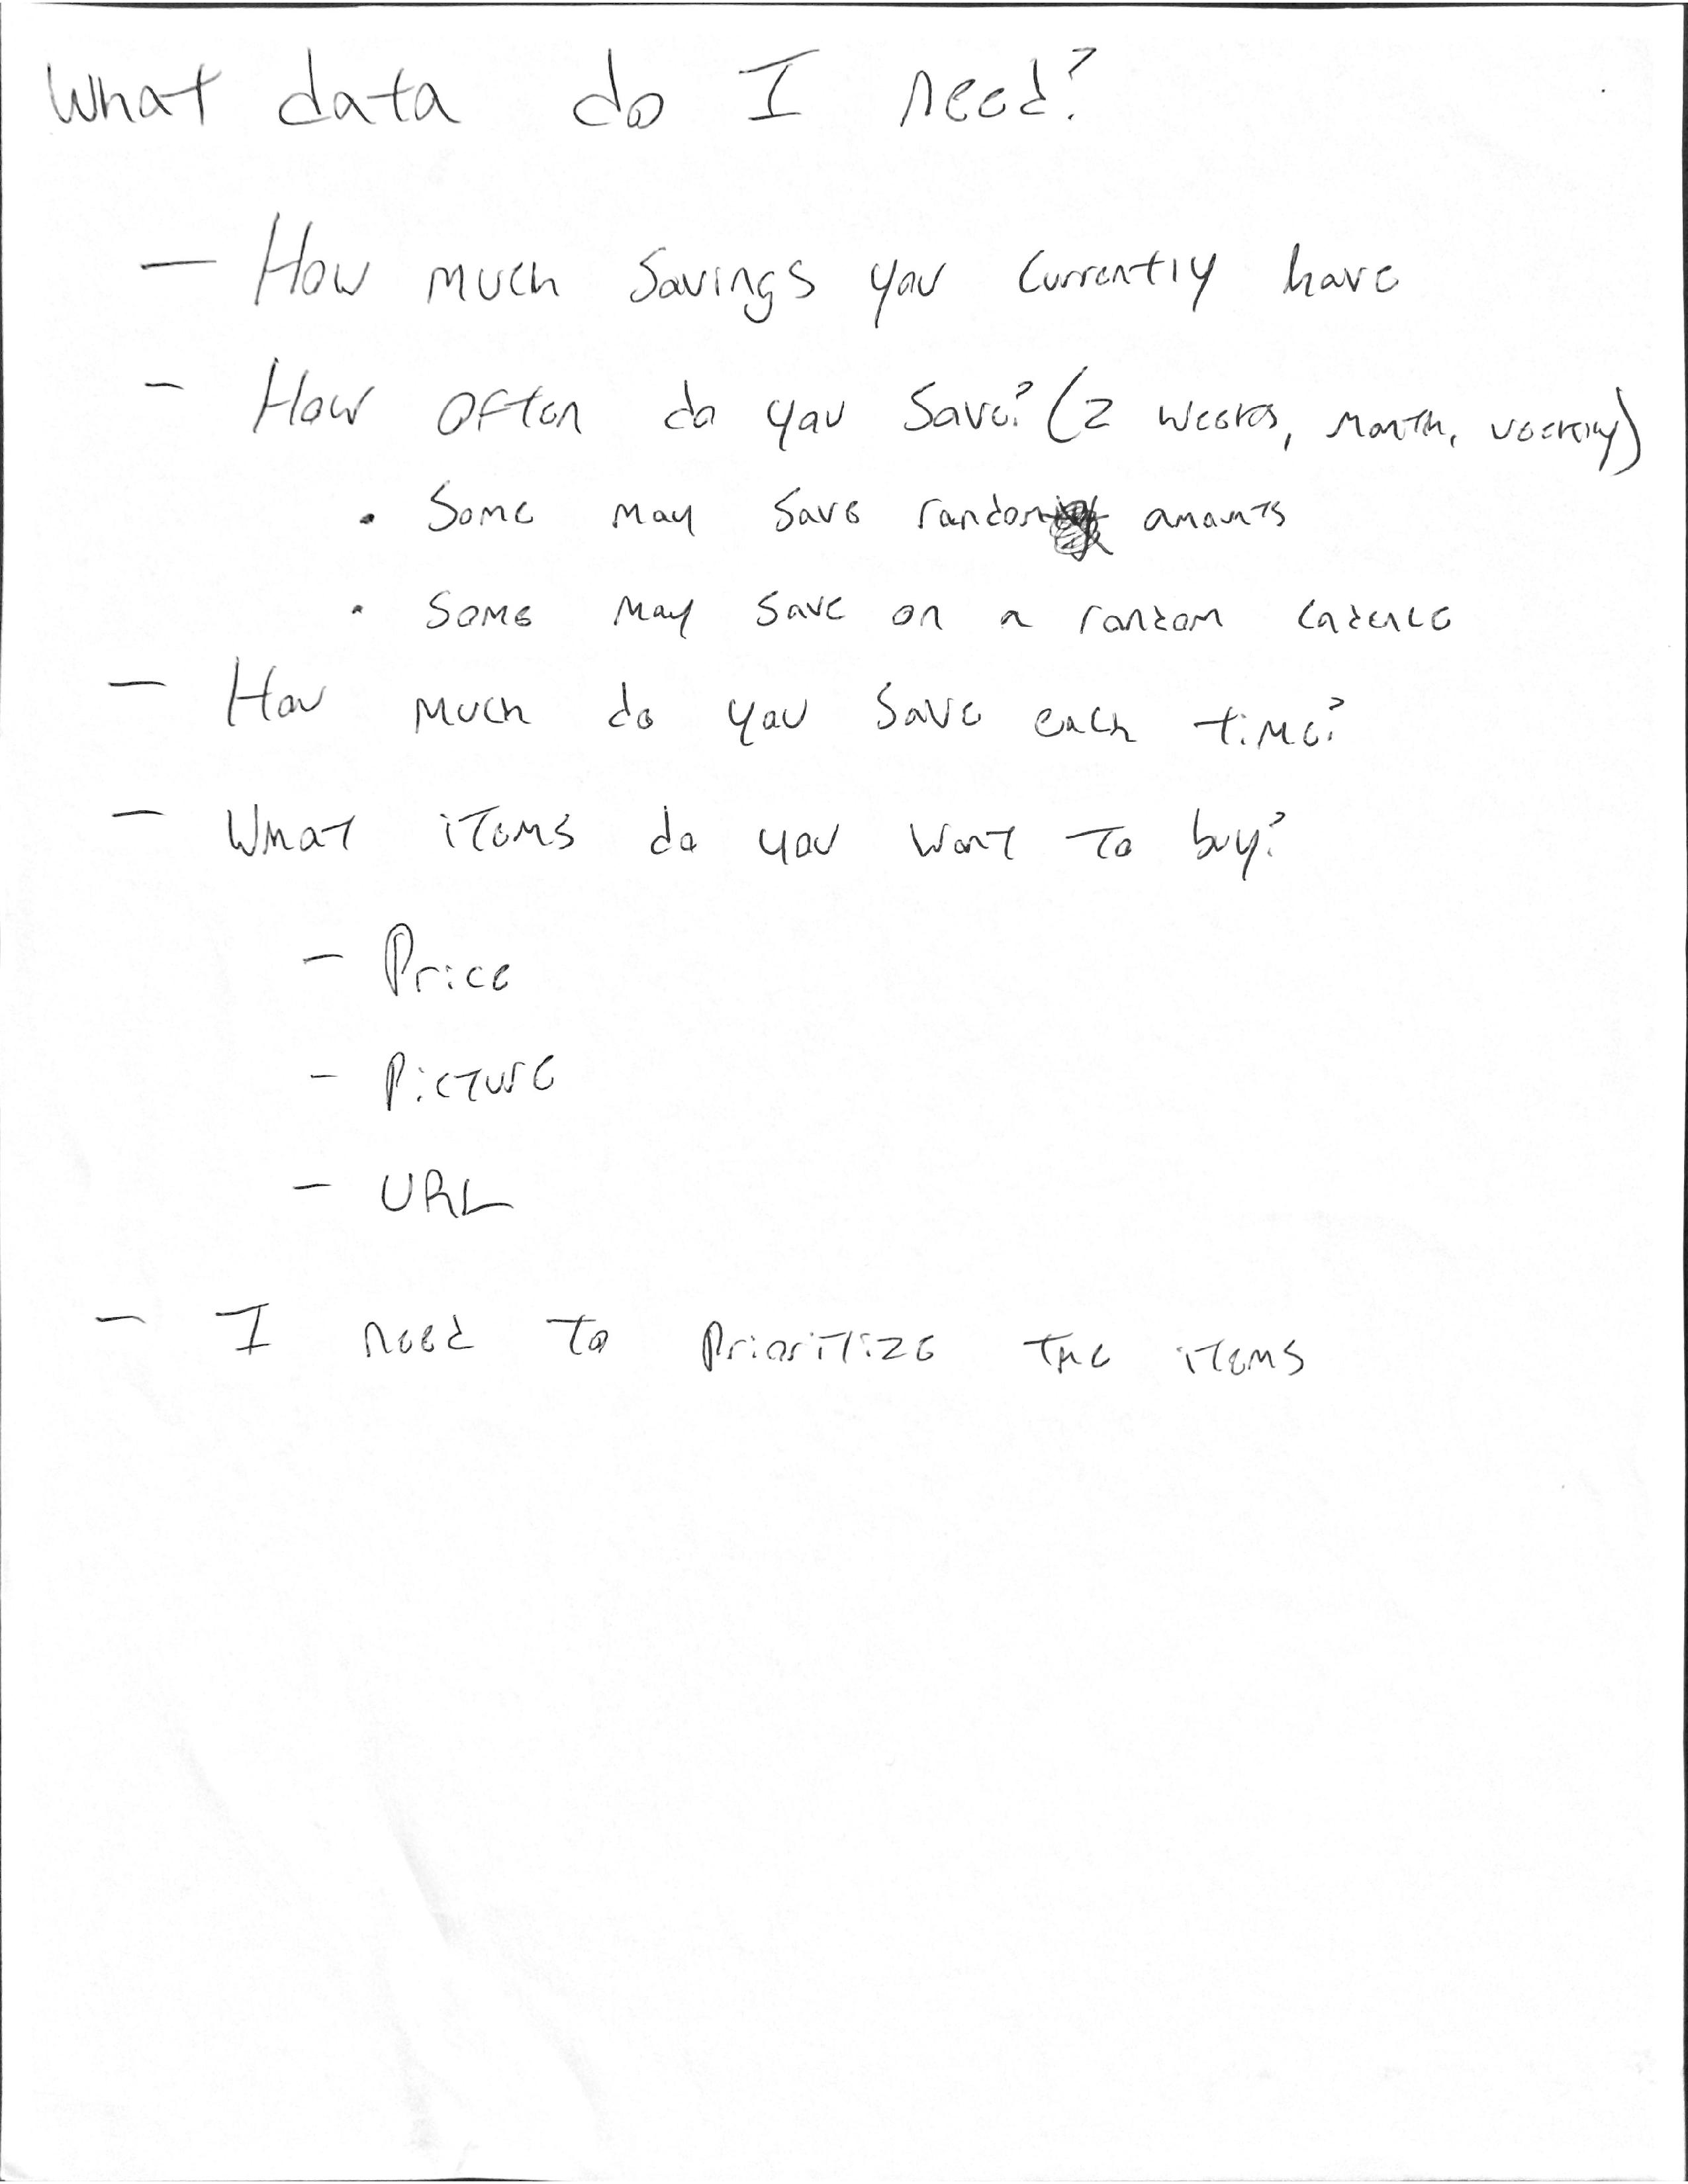 What data do I need?
- How much savings you currently have
- How often do you save? (2 weeks, month, weekly)
• Some may save random amounts
• Some may save on a random cadence
- How much do you save each time?
- What items do you want to buy?
- Price
- Picture
- URL
- I need to prioritize the items